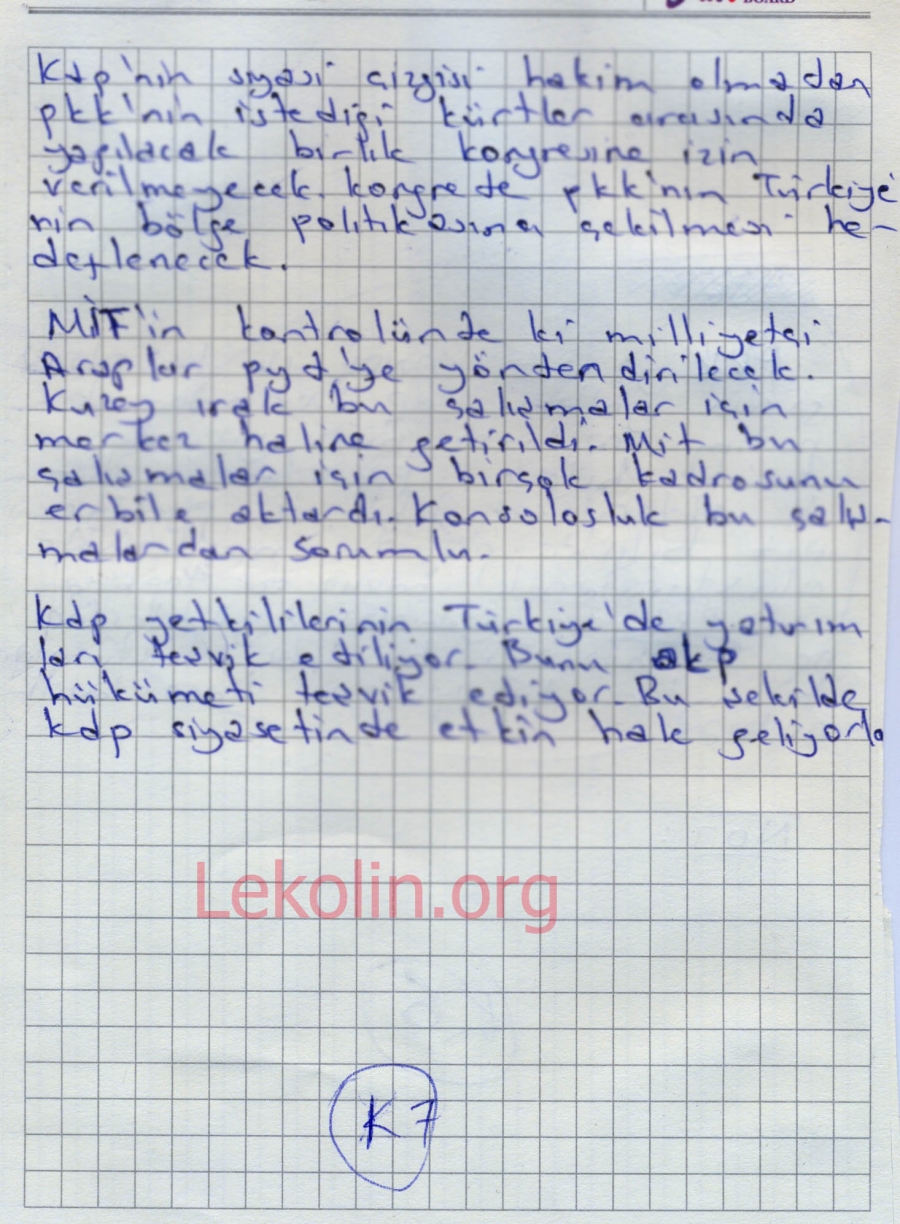 BOARD
Kdp'nin siyasi çizgisi hakim olmadan
pkk'nin istediği kürtler arasında
yapılacak birlik kongresine izin
verilmeyecek. kongrede pkk'nın Türkiye'
nin bölge politikasına çekilmesi he-
deflenecek.
MİT'in kontrolünde ki milliyetçi
Araplar pyd'ye yönlendirilecek.
Kuzey ırak bu çalışmalar için
merkez haline getirildi. Mit bu
çalışmalar için birçok kadrosunu
erbile aktardı. Konsolosluk bu çalış-
malardan sorumlu.
Kdp yetkililerinin Türkiye'de yatırım
ları teşvik ediliyor. Bunu akp
hükümeti teşvik ediyor. Bu şekilde
kdp siyasetinde etkin hale geliyorla
Lekolin.org
K7